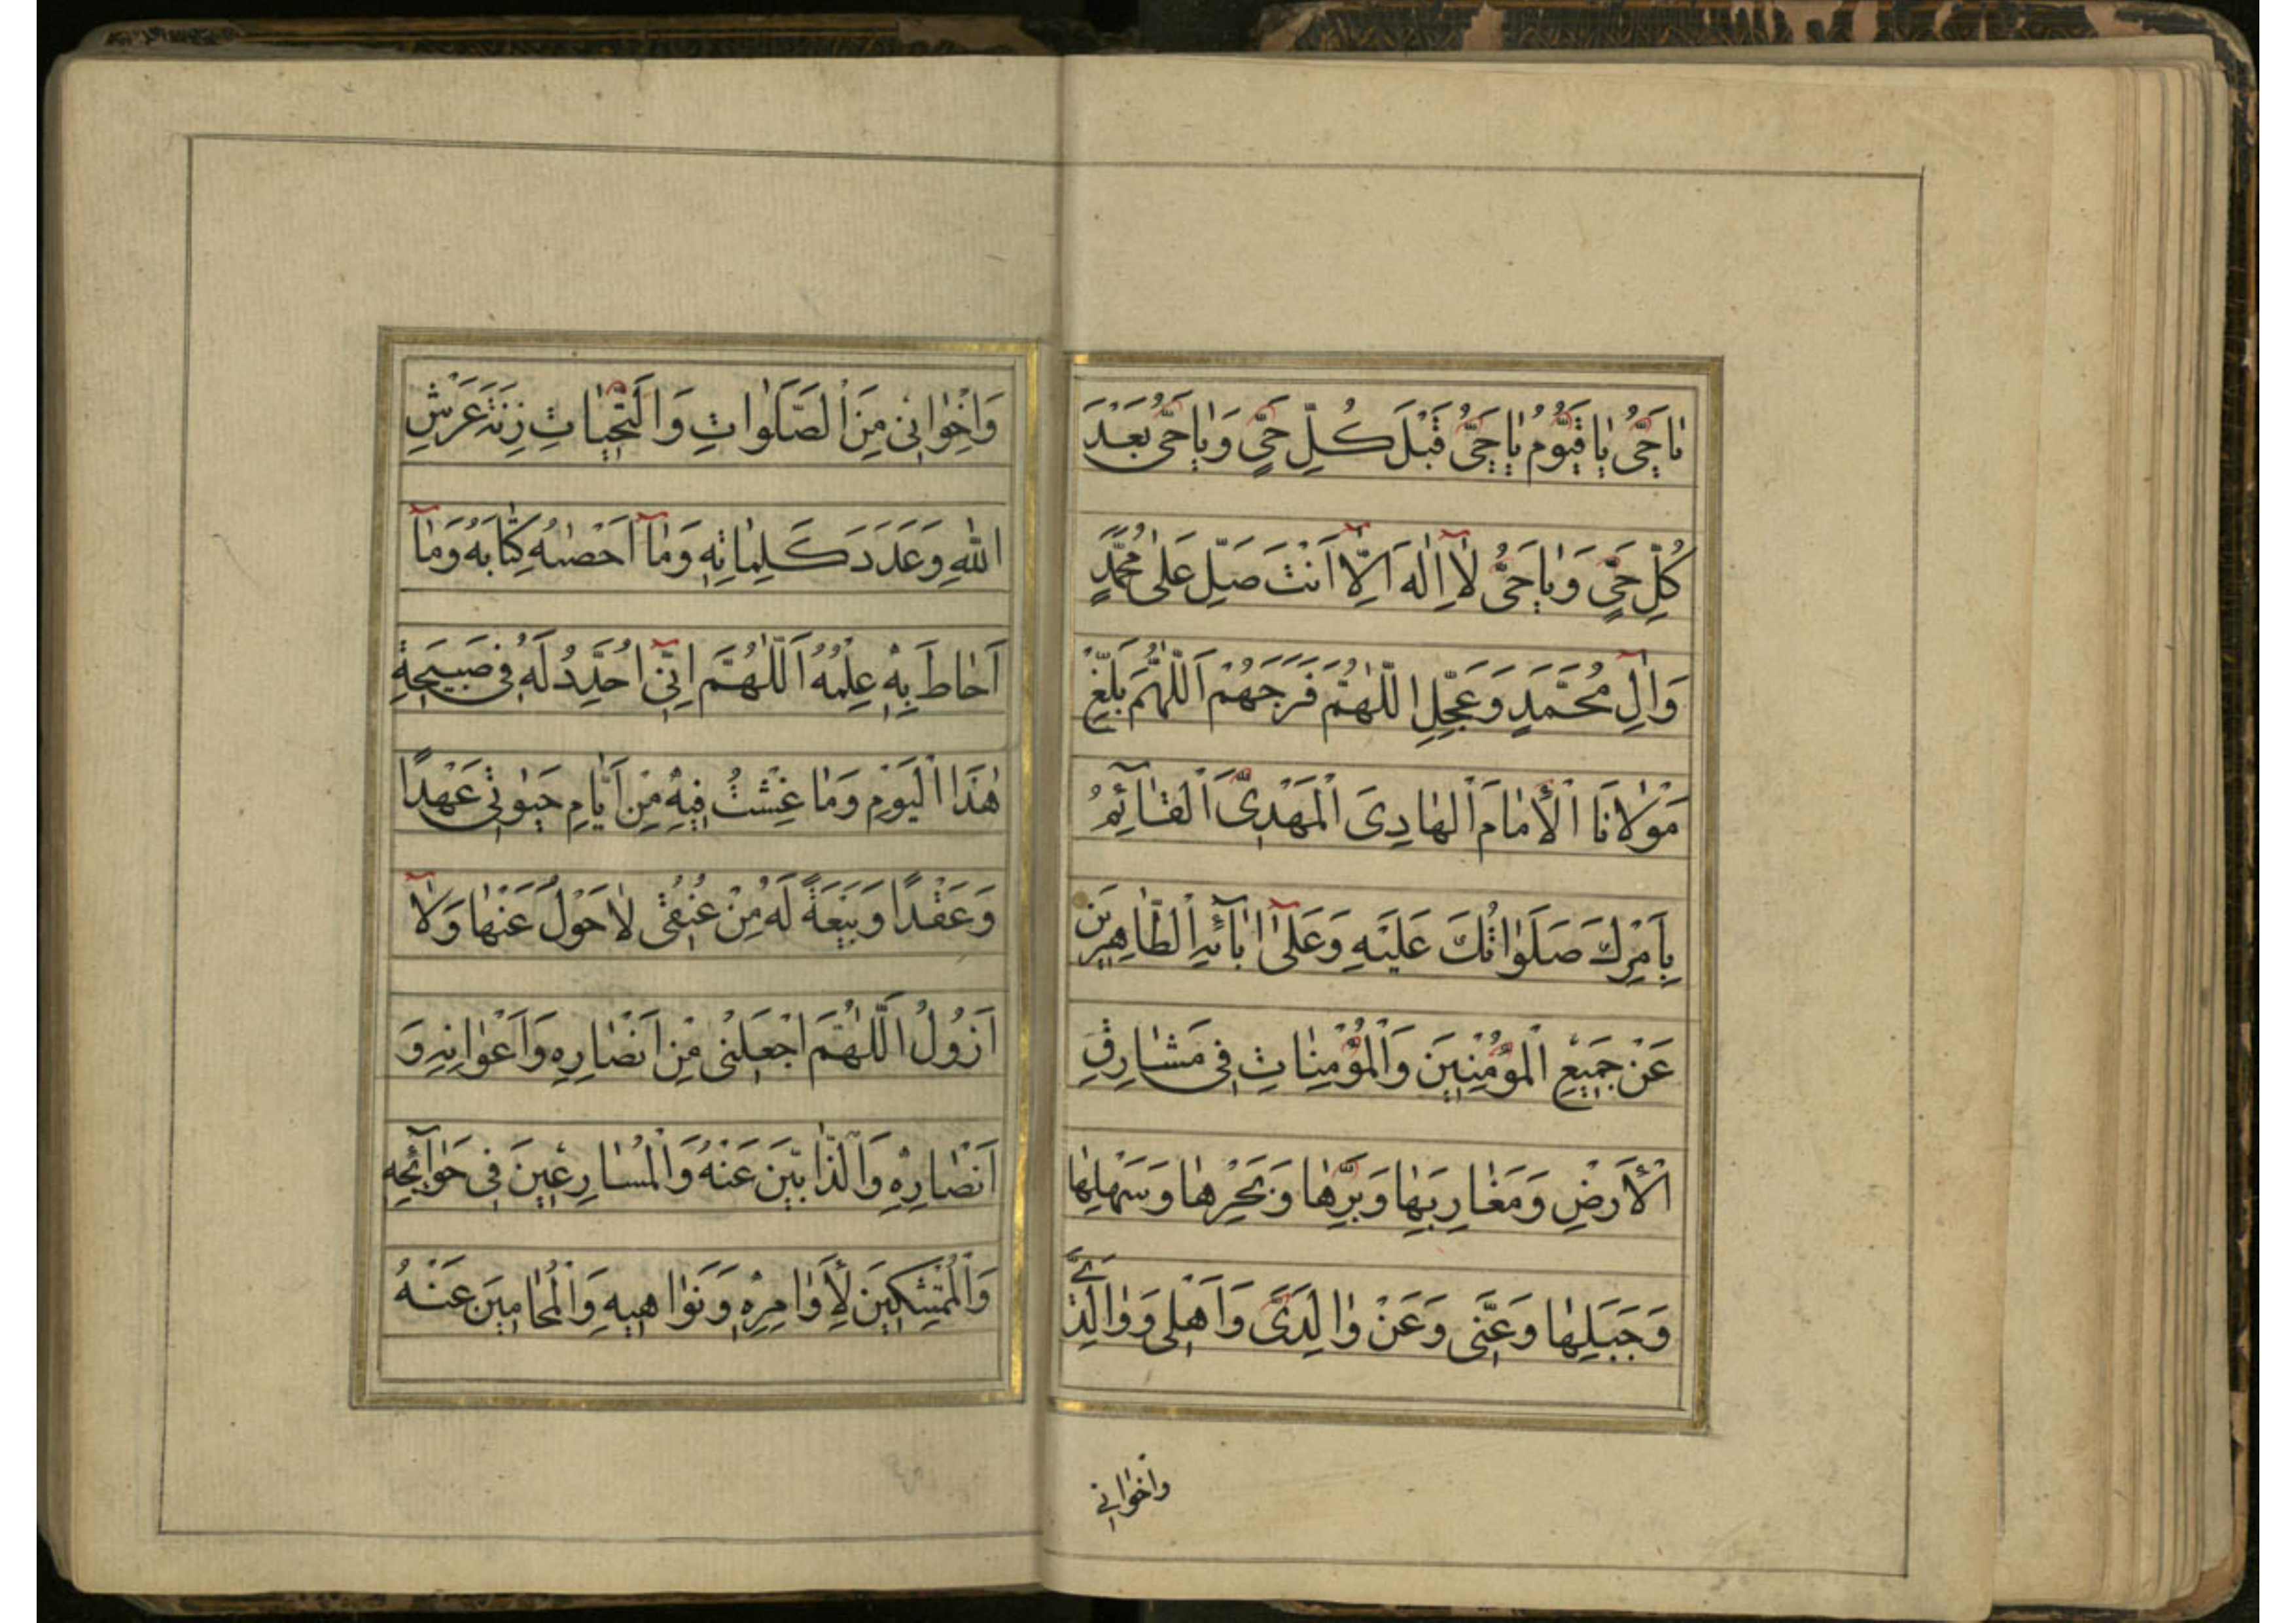 يَا حَيُّ يَا قَيُّومُ يَا حَيُّ قَبْلَ كُلِّ حَيٍّ وَيَا حَيُّ بَعْدَ
كُلِّ حَيٍّ وَيَا حَيُّ لَآ اِلٰهَ اِلَّآ اَنْتَ صَلِّ عَلٰى مُحَمَّدٍ
وَاٰلِ مُحَمَّدٍ وَعَجِّلِ اللّٰهُمَّ فَرَجَهُمْ اَللّٰهُمَّ بَلِّغْ
مَوْلَانَا الْأِمَامَ الْهَادِىَ الْمَهْدِىَّ الْقَآئِمَ
بِاَمْرِكَ صَلَوَاتُكَ عَلَيْهِ وَعَلٰىٓ اٰبَآئِهِ الطَّاهِرِينَ
عَنْ جَمِيعِ الْمُؤْمِنِينَ وَالْمُؤْمِنَاتِ فِى مَشَارِقِ
الْأَرْضِ وَمَغَارِبِهَا وَبَرِّهَا وَبَحْرِهَا وَسَهْلِهَا
وَجَبَلِهَا وَعَنِّى وَعَنْ وَالِدَىَّ وَاَهْلِى وَوَالِدَىَّ
وَاَخْوَانِى
وَاِخْوَانِى مِنَ الصَّلَوَاتِ وَالتَّحِيَّاتِ زِنَةَ عَرْشِ
اللّٰهِ وَعَدَدَ كَلِمَاتِهِ وَمَآ اَحْصٰىهُ كِتَابُهُ وَمَآ
اَحَاطَ بِهِ عِلْمُهُ اَللّٰهُمَّ اِنِّىٓ اُحَدِّدُ لَهُ فِى صَبِيحَةِ
هٰذَا الْيَوْمِ وَمَا عِشْتُ فِيهِ مِنْ اَيَّامِ حَيٰوتِى عَهْدًا
وَعَقْدًا وَبَيْعَةً لَهُ مِنْ عُنُقِى لَا حَوْلَ عَنْهَا وَلَآ
اَزُولُ اَللّٰهُمَّ اجْعَلْنِى مِنْ اَنْصَارِهِ وَاَعْوَانِهِ وَ
اَنْصَارِهِ وَالذَّابِّينَ عَنْهُ وَالْمُسَارِعِينَ فِى حَوَآئِجِهِ
وَالْمُمْتَثِلِينَ لِأَوَامِرِهِ وَنَوَاهِيهِ وَالْمُحَامِينَ عَنْهُ